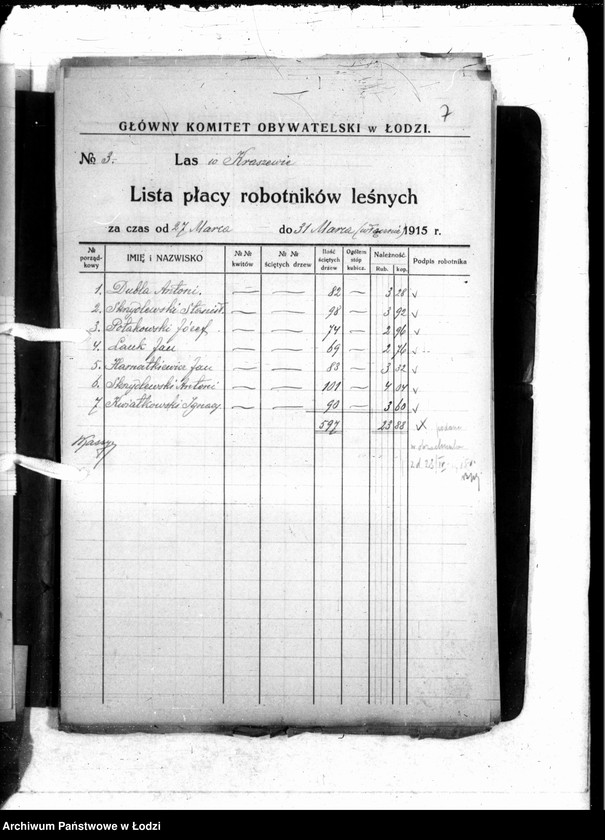 7
GŁÓWNY KOMITET OBYWATELSKI w ŁODZI.
№ 3. Las w Kraszewie
Lista płacy robotników leśnych
za czas od 27 Marca do 31 Marca (włącznie) 1915 r.
№ porządkowy IMIĘ i NAZWISKO №№ kwitów №№ ściętych drzew Ilość ściętych drzew Ogółem stóp kubicz. Należność. Rub. kop. Podpis robotnika
1. Dubla Antoni. — — 82 — 3 28
2. Skrydlewski Stanisł. — — 98 — 3 92
3. Polakowski Józef — — 74 — 2 96
4. Lauk Jan — — 69 — 2 76
5. Harnatkiewicz Jan — — 83 — 3 32
6. Skrydlewski Antoni — — 101 — 4 04
7. Kwiatkowski Ignacy — — 90 — 3 60
597 23 88
Archiwum Państwowe w Łodzi